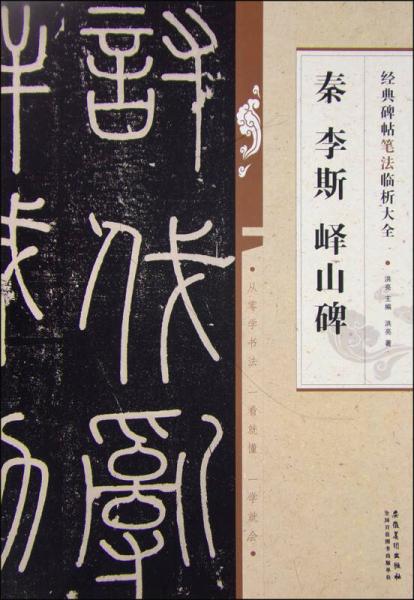 经典碑帖笔法临析大全
洪亮 主编 洪亮 著
秦 李斯 峄山碑
从零学书法 一看就懂 一学就会
討伐亂
安徽美术出版社
全国百佳图书出版单位